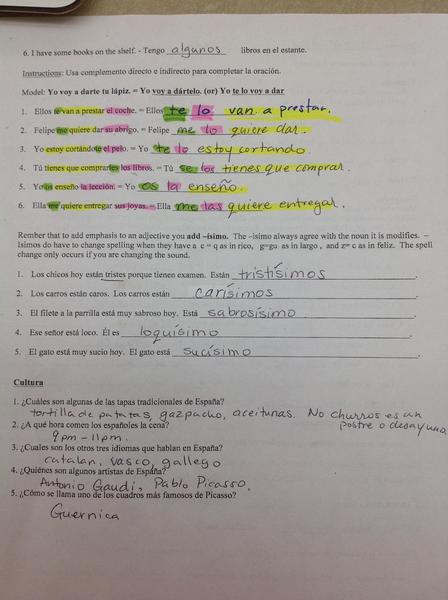 6. I have some books on the shelf. - Tengo algunos libros en el estante.
Instructions: Usa complemento directo e indirecto para completar la oración.
Model: Yo voy a darte tu lápiz. = Yo voy a dártelo. (or) Yo te lo voy a dar
1. Ellos te van a prestar el coche. = Ellos te lo van a prestar.
2. Felipe me quiere dar su abrigo. = Felipe me lo quiere dar.
3. Yo estoy cortándote el pelo. = Yo te lo estoy cortando.
4. Tú tienes que comprarles los libros. = Tú se los tienes que comprar.
5. Yo os enseño la lección. = Yo os la enseño.
6. Ella me quiere entregar sus joyas. = Ella me las quiere entregar.
Rember that to add emphasis to an adjective you add –ísimo. The –ísimo always agree with the noun it is modifies. –
Isimos do have to change spelling when they have a c = q as in rico, g=gu as in largo , and z= c as in feliz. The spell
change only occurs if you are changing the sound.
1. Los chicos hoy están tristes porque tienen examen. Están tristísimos.
2. Los carros están caros. Los carros están carísimos.
3. El filete a la parrilla está muy sabroso hoy. Está sabrosísimo.
4. Ese señor está loco. Él es loquísimo.
5. El gato está muy sucio hoy. El gato está sucísimo.
Cultura
1. ¿Cuáles son algunas de las tapas tradicionales de España?
tortilla de patatas, gazpacho, aceitunas. No churros es un
postre o desayuno
2. ¿A qué hora comen los españoles la cena?
9pm - 11pm.
3. ¿Cuales son los otros tres idiomas que hablan en España?
catalan, vasco, gallego
4. ¿Quiénes son algunos artistas de España?
Antonio Gaudí, Pablo Picasso,
5. ¿Cómo se llama uno de los cuadros más famosos de Picasso?
Guernica